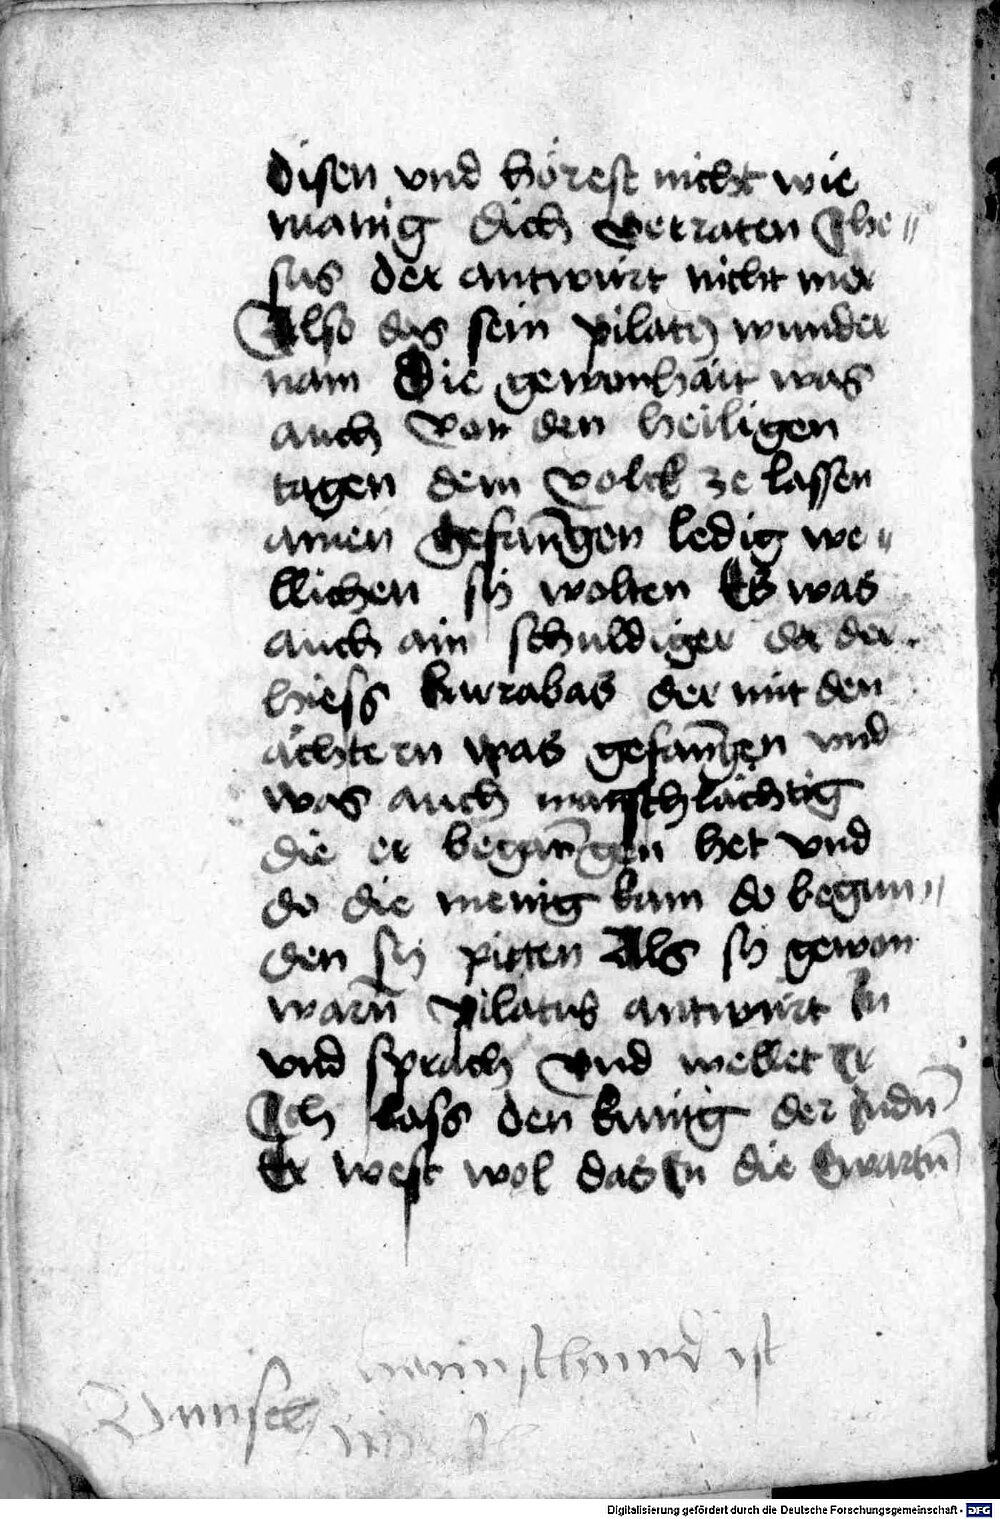 disen vnd hörest nicht wie
manig dich verraten Jhe„
sus der antwürt nicht mer
Also das sein pilatus wunder
nam Die gewonhait was
auch von den heiligen
tagen dem volck ze lassen
ainen gefan̄gen ledig we„
llichen sÿ wolten Es was
auch ain schuldiger da der
hiess barrabas der mit den
ächtern was gefan̄gen vnd
was auch manschlächtig
die er began̄gen het vnd
do die menig kam do begun„
den sÿ pitten Als sÿ gewon
warn̄ Pilatus antwürt Jn
vnd sprach vnd wellet Jr
Jch lass den kunig der Judn̄
Er west wol das Jn die Ewartn̄
ist
Digitalisierung gefördert durch die Deutsche Forschungsgemeinschaft - DFG